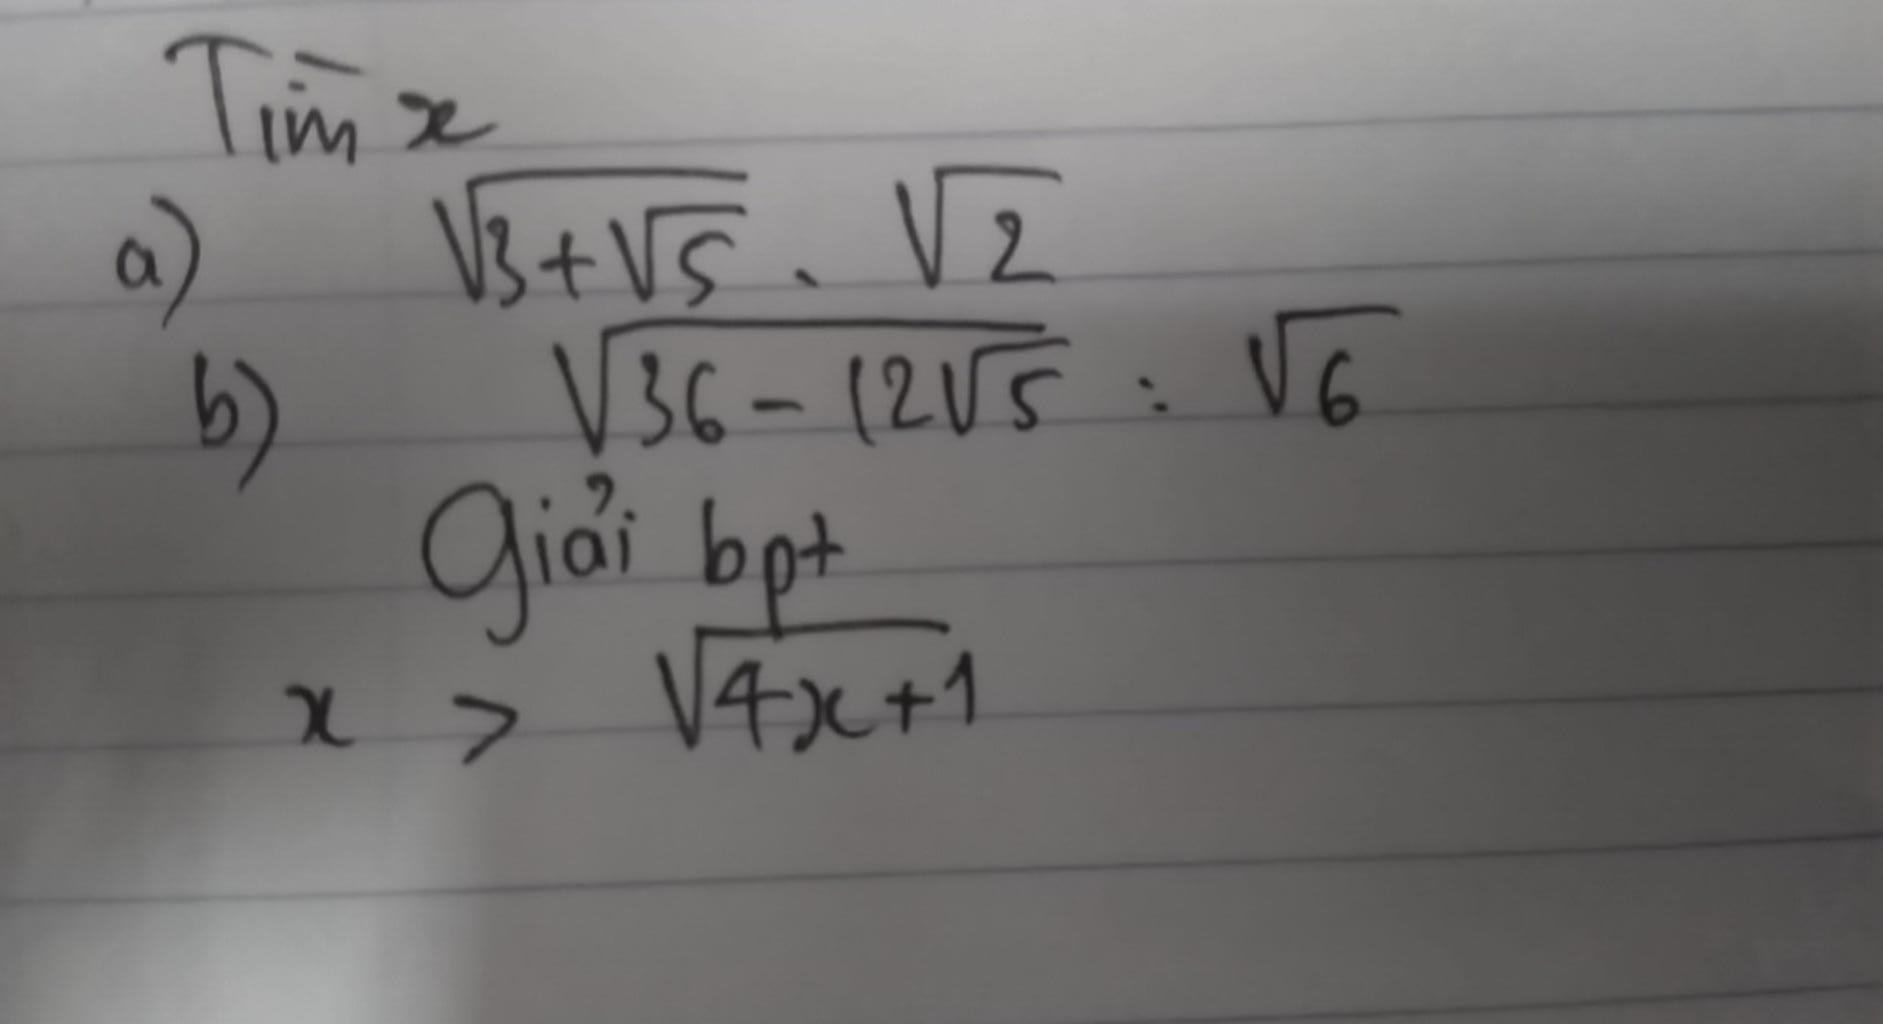 Tìm x
a) √(3+√5) . √2
b) √(36-12√5) : √6
Giải bpt
x > √(4x+1)